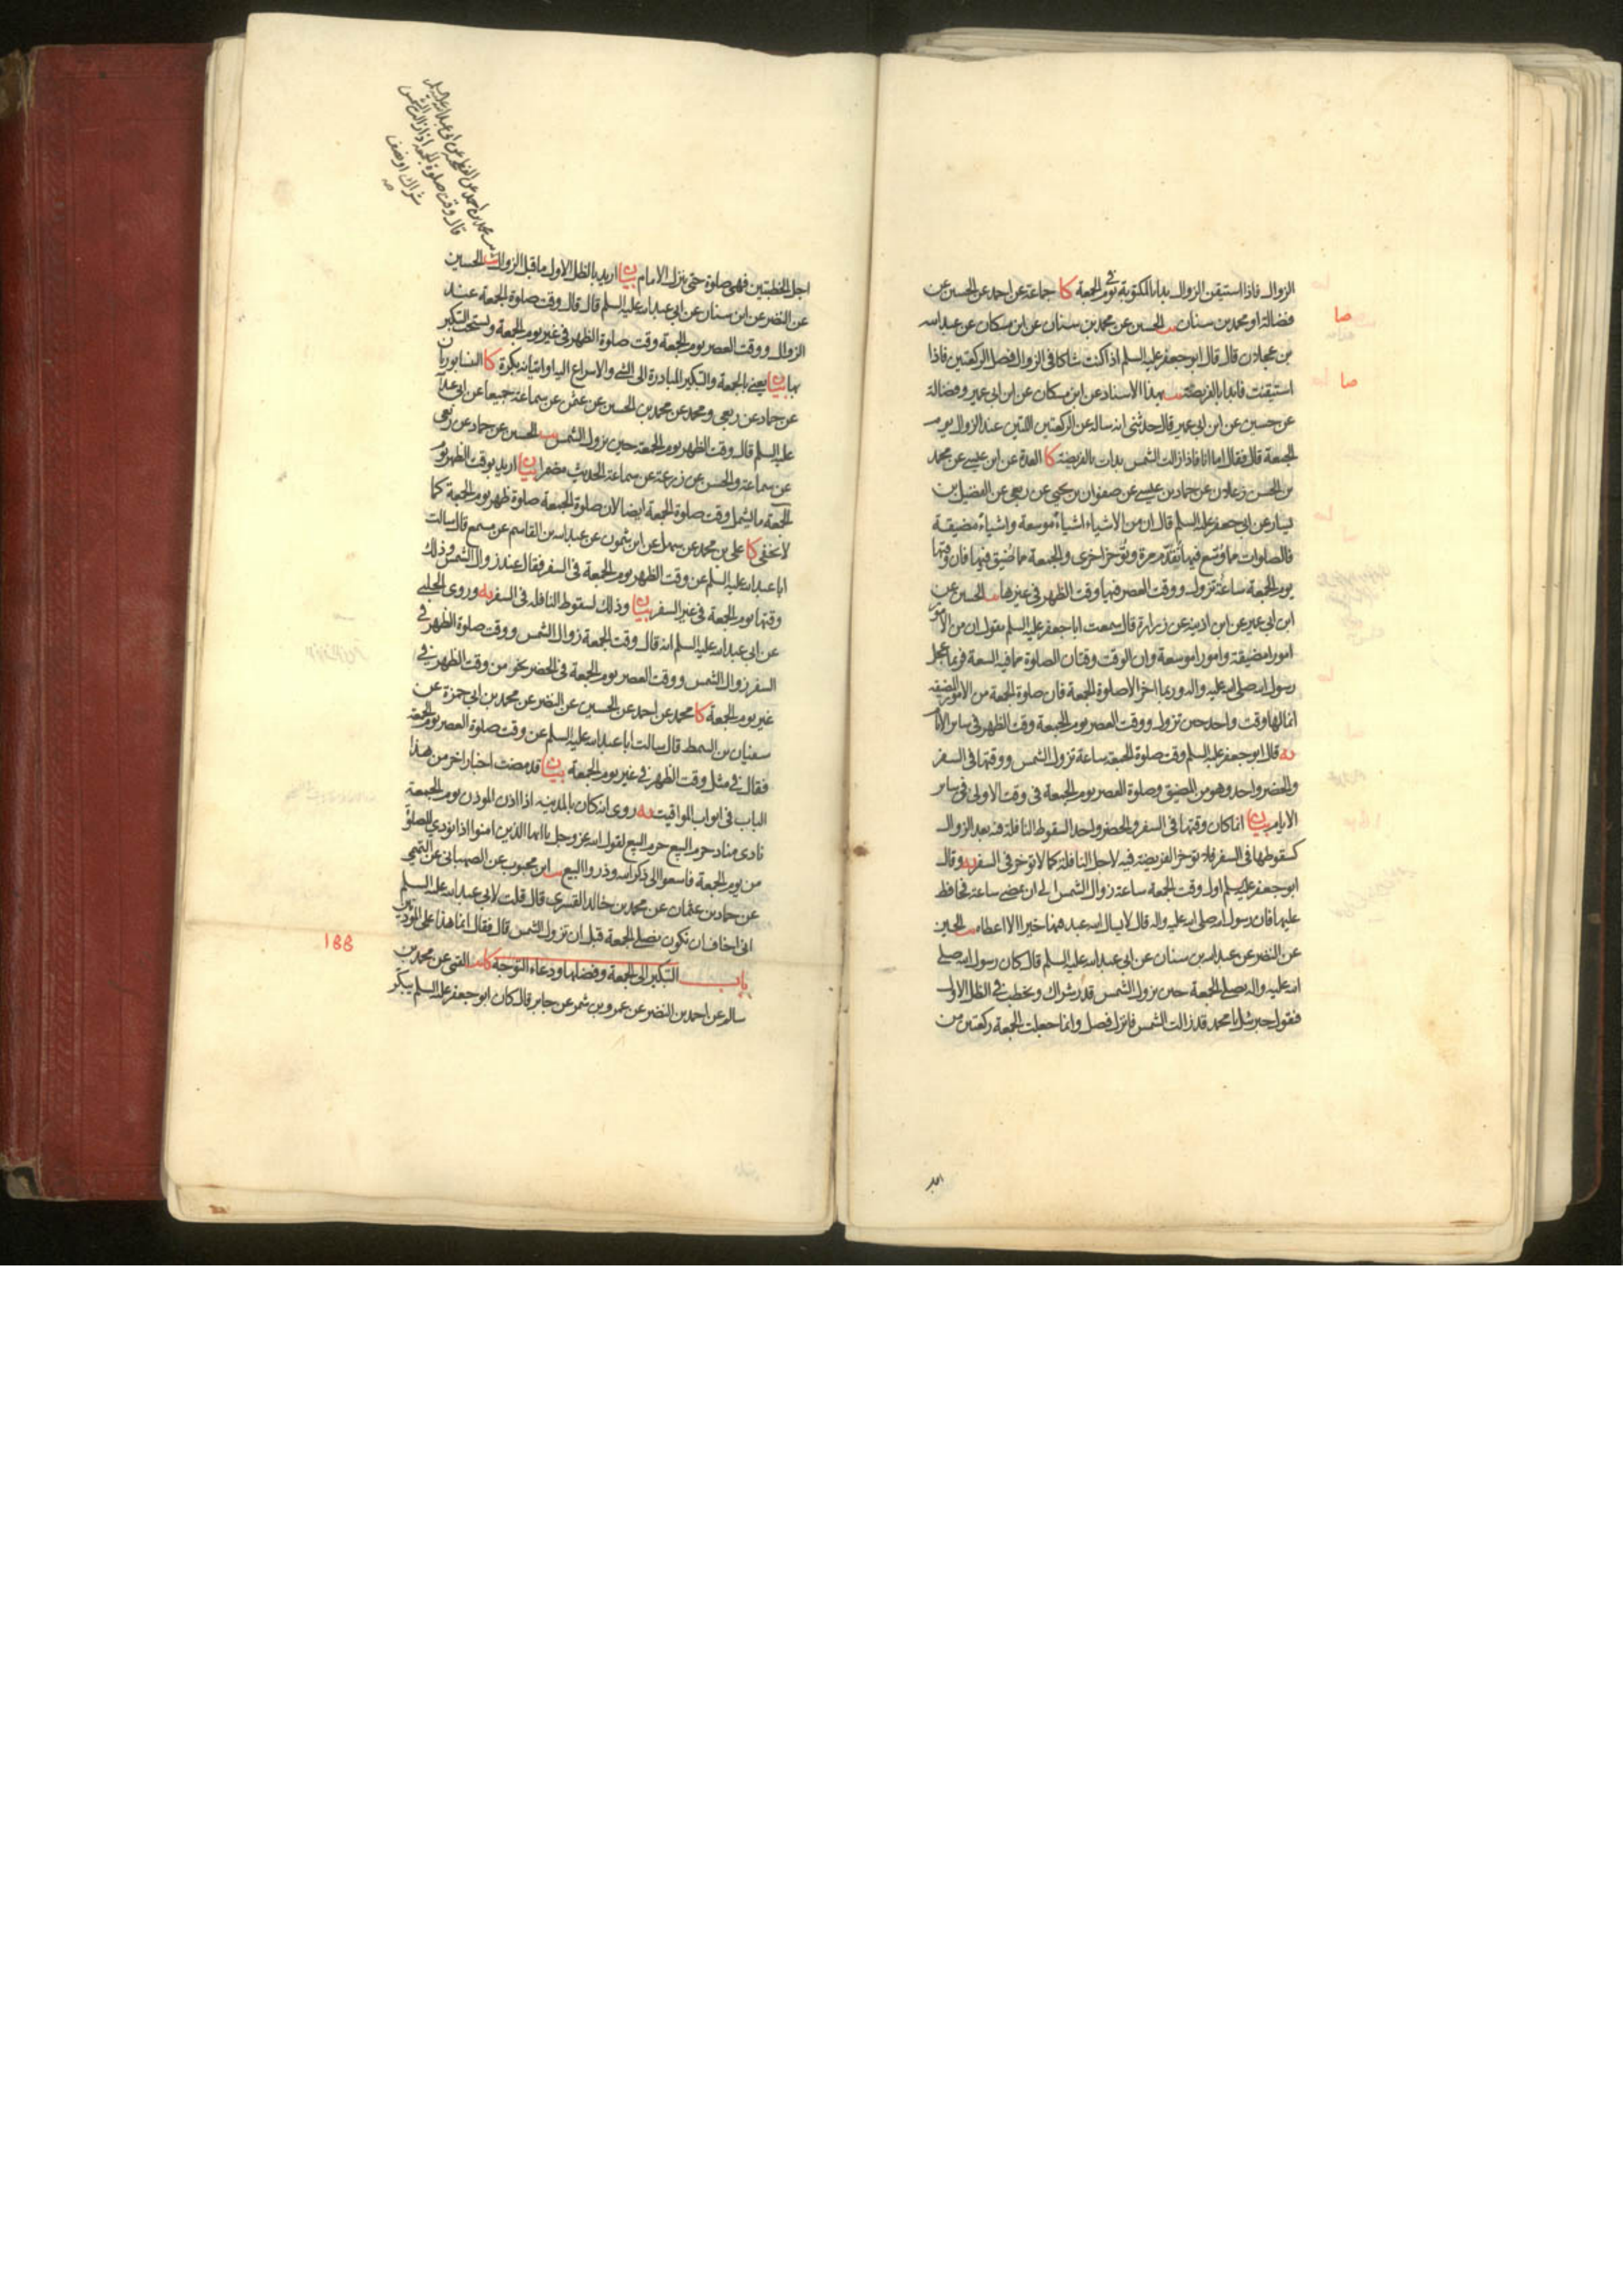 الزوال فاذا استيقن الزوال بدا بالمكتوبة في يوم الجمعة كا جماعة عن احمد عن الحسين عن
صا
فضالة او محمد بن سنان يب الحسين عن محمد بن سنان عن ابن مسكان عن عبد الله
بن عجلان قال قال ابو جعفر عليه السلم اذا كنت شاكا في الزوال فصل الركعتين فاذا
صا
استيقنت فابدا بالفريضة يب بهذا الاسناد عن ابن مسكان عن ابن ابي عمير وفضالة
عن حسين عن ابن ابي عمير قال حدثني انه ساله عن الركعتين اللتين عند الزوال يوم
الجمعة قال فقال اما انا فاذا زالت الشمس بدات بالفريضة كا العدة عن ابن عيسى عن محمد
بن الحسن زعلان عن حماد بن عيسى عن صفوان بن يحيى عن ربعي عن الفضيل بن
يسار عن ابي جعفر عليه السلم قال ان من الاشياء اشياءً موسعة واشياءً مضيقة
فالصلوات مما وسع فيها تقدّم مرة وتؤخر اخرى والجمعة مما ضيق فيها فان وقتها
يوم الجمعة ساعة تزول ووقت العصر فيها وقت الظهر في غيرها يب الحسين عن
ابن ابي عمير عن ابن اذينة عن زرارة قال سمعت ابا جعفر عليه السلم يقول ان من الامور
امورا مضيقة وامورا موسعة وان الوقت وقتان الصلوة مما فيه السعة فربما عجل
رسول الله صلى الله عليه واله وربما اخر الا صلوة الجمعة فان صلوة الجمعة من الامور المضيقة
انما لها وقت واحد حين تزول ووقت العصر يوم الجمعة وقت الظهر في ساير الايام
يه قال ابو جعفر عليه السلم وقت صلوة الجمعة ساعة تزول الشمس ووقتها في السفر
والحضر واحد وهو من المضيق وصلوة العصر يوم الجمعة في وقت الاولى في ساير
الايام بيان انما كان وقتها في السفر والحضر واحدا لسقوط النافلة فيه بعد الزوال
كسقوطها في السفر فلا تؤخر الفريضة فيه لاجل النافلة كما لا تؤخر في السفر يه وقال
ابو جعفر عليه السلم اول وقت الجمعة ساعة زوال الشمس الى ان يمضي ساعة فحافظ
عليها فان رسول الله صلى الله عليه واله قال لا يسال الله عبد فيها خيرا الا اعطاه يب الحسين
عن النضر عن عبد الله بن سنان عن ابي عبد الله عليه السلم قال كان رسول الله صلى
الله عليه واله يصلي الجمعة حين تزول الشمس قدر شراك ويخطب في الظل الاول
فيقول جبرئيل يا محمد قد زالت الشمس فانزل فصل وانما جعلت الجمعة ركعتين من
قال وقت صلوة الجمعة اذا زالت الشمس
شراك او نصف
اجل الخطبتين فهي صلوة حتى ينزل الامام بيان اريد بالظل الاول ما قبل الزوال يب الحسين
عن النضر عن ابن سنان عن ابي عبد الله عليه السلم قال قال وقت صلوة الجمعة عند
الزوال ووقت العصر يوم الجمعة وقت صلوة الظهر في غير يوم الجمعة ويستحب التبكير
بها بيان يعني بالجمعة والتبكير المبادرة الى الشئ والاسراع اليه او اتيانه بكرة كا النيسابوريان
عن حماد عن ربعي ومحمد عن محمد بن الحسين عن عثمن عن سماعة جميعا عن ابي عبد الله
عليه السلم قال وقت الظهر يوم الجمعة حين تزول الشمس يب الحسين عن حماد عن ربعي
عن سماعة والحسن عن زرعة عن سماعة الحديث مضمرا بيان اريد بوقت الظهر يوم
الجمعة ما يشمل وقت صلوة الجمعة ايضا لان صلوة الجمعة صلوة ظهر يوم الجمعة كما
لا يخفى كا علي بن محمد عن سهل عن ابن شمون عن عبد الله بن القاسم عن مسمع قال سالت
ابا عبد الله عليه السلم عن وقت الظهر يوم الجمعة في السفر فقال عند زوال الشمس وذلك
وقتها يوم الجمعة في غير السفر بيان وذلك لسقوط النافلة في السفر يه وروى الحلبي
عن ابي عبد الله عليه السلم انه قال وقت الجمعة زوال الشمس ووقت صلوة الظهر في
السفر زوال الشمس ووقت العصر يوم الجمعة في الحضر نحو من وقت الظهر في
غير يوم الجمعة كا محمد عن احمد عن الحسين عن النضر عن محمد بن ابي حمزة عن
سفيان بن السمط قال سالت ابا عبد الله عليه السلم عن وقت صلوة العصر يوم الجمعة
فقال في مثل وقت الظهر في غير يوم الجمعة بيان قد مضت اخبار اخر من هذا
الباب في ابواب المواقيت يه روى انه كان بالمدينة اذا اذن المؤذن يوم الجمعة
نادى مناد حرم البيع حرم البيع لقول الله عز وجل يا ايها الذين امنوا اذا نودي للصلوة
من يوم الجمعة فاسعوا الى ذكر الله وذروا البيع يب ابن محبوب عن الصهباني عن التميمي
عن حماد بن عثمان عن محمد بن خالد القسري قال قلت لابي عبد الله عليه السلم
اني اخاف ان نكون نصلي الجمعة قبل ان تزول الشمس قال فقال انما هذا على المؤذنين
188
باب التبكير الى الجمعة وفضلها ودعاء التوجه كا يب القمي عن محمد بن
سالم عن احمد بن النضر عن عمرو بن شمر عن جابر قال كان ابو جعفر عليه السلم يبكّر